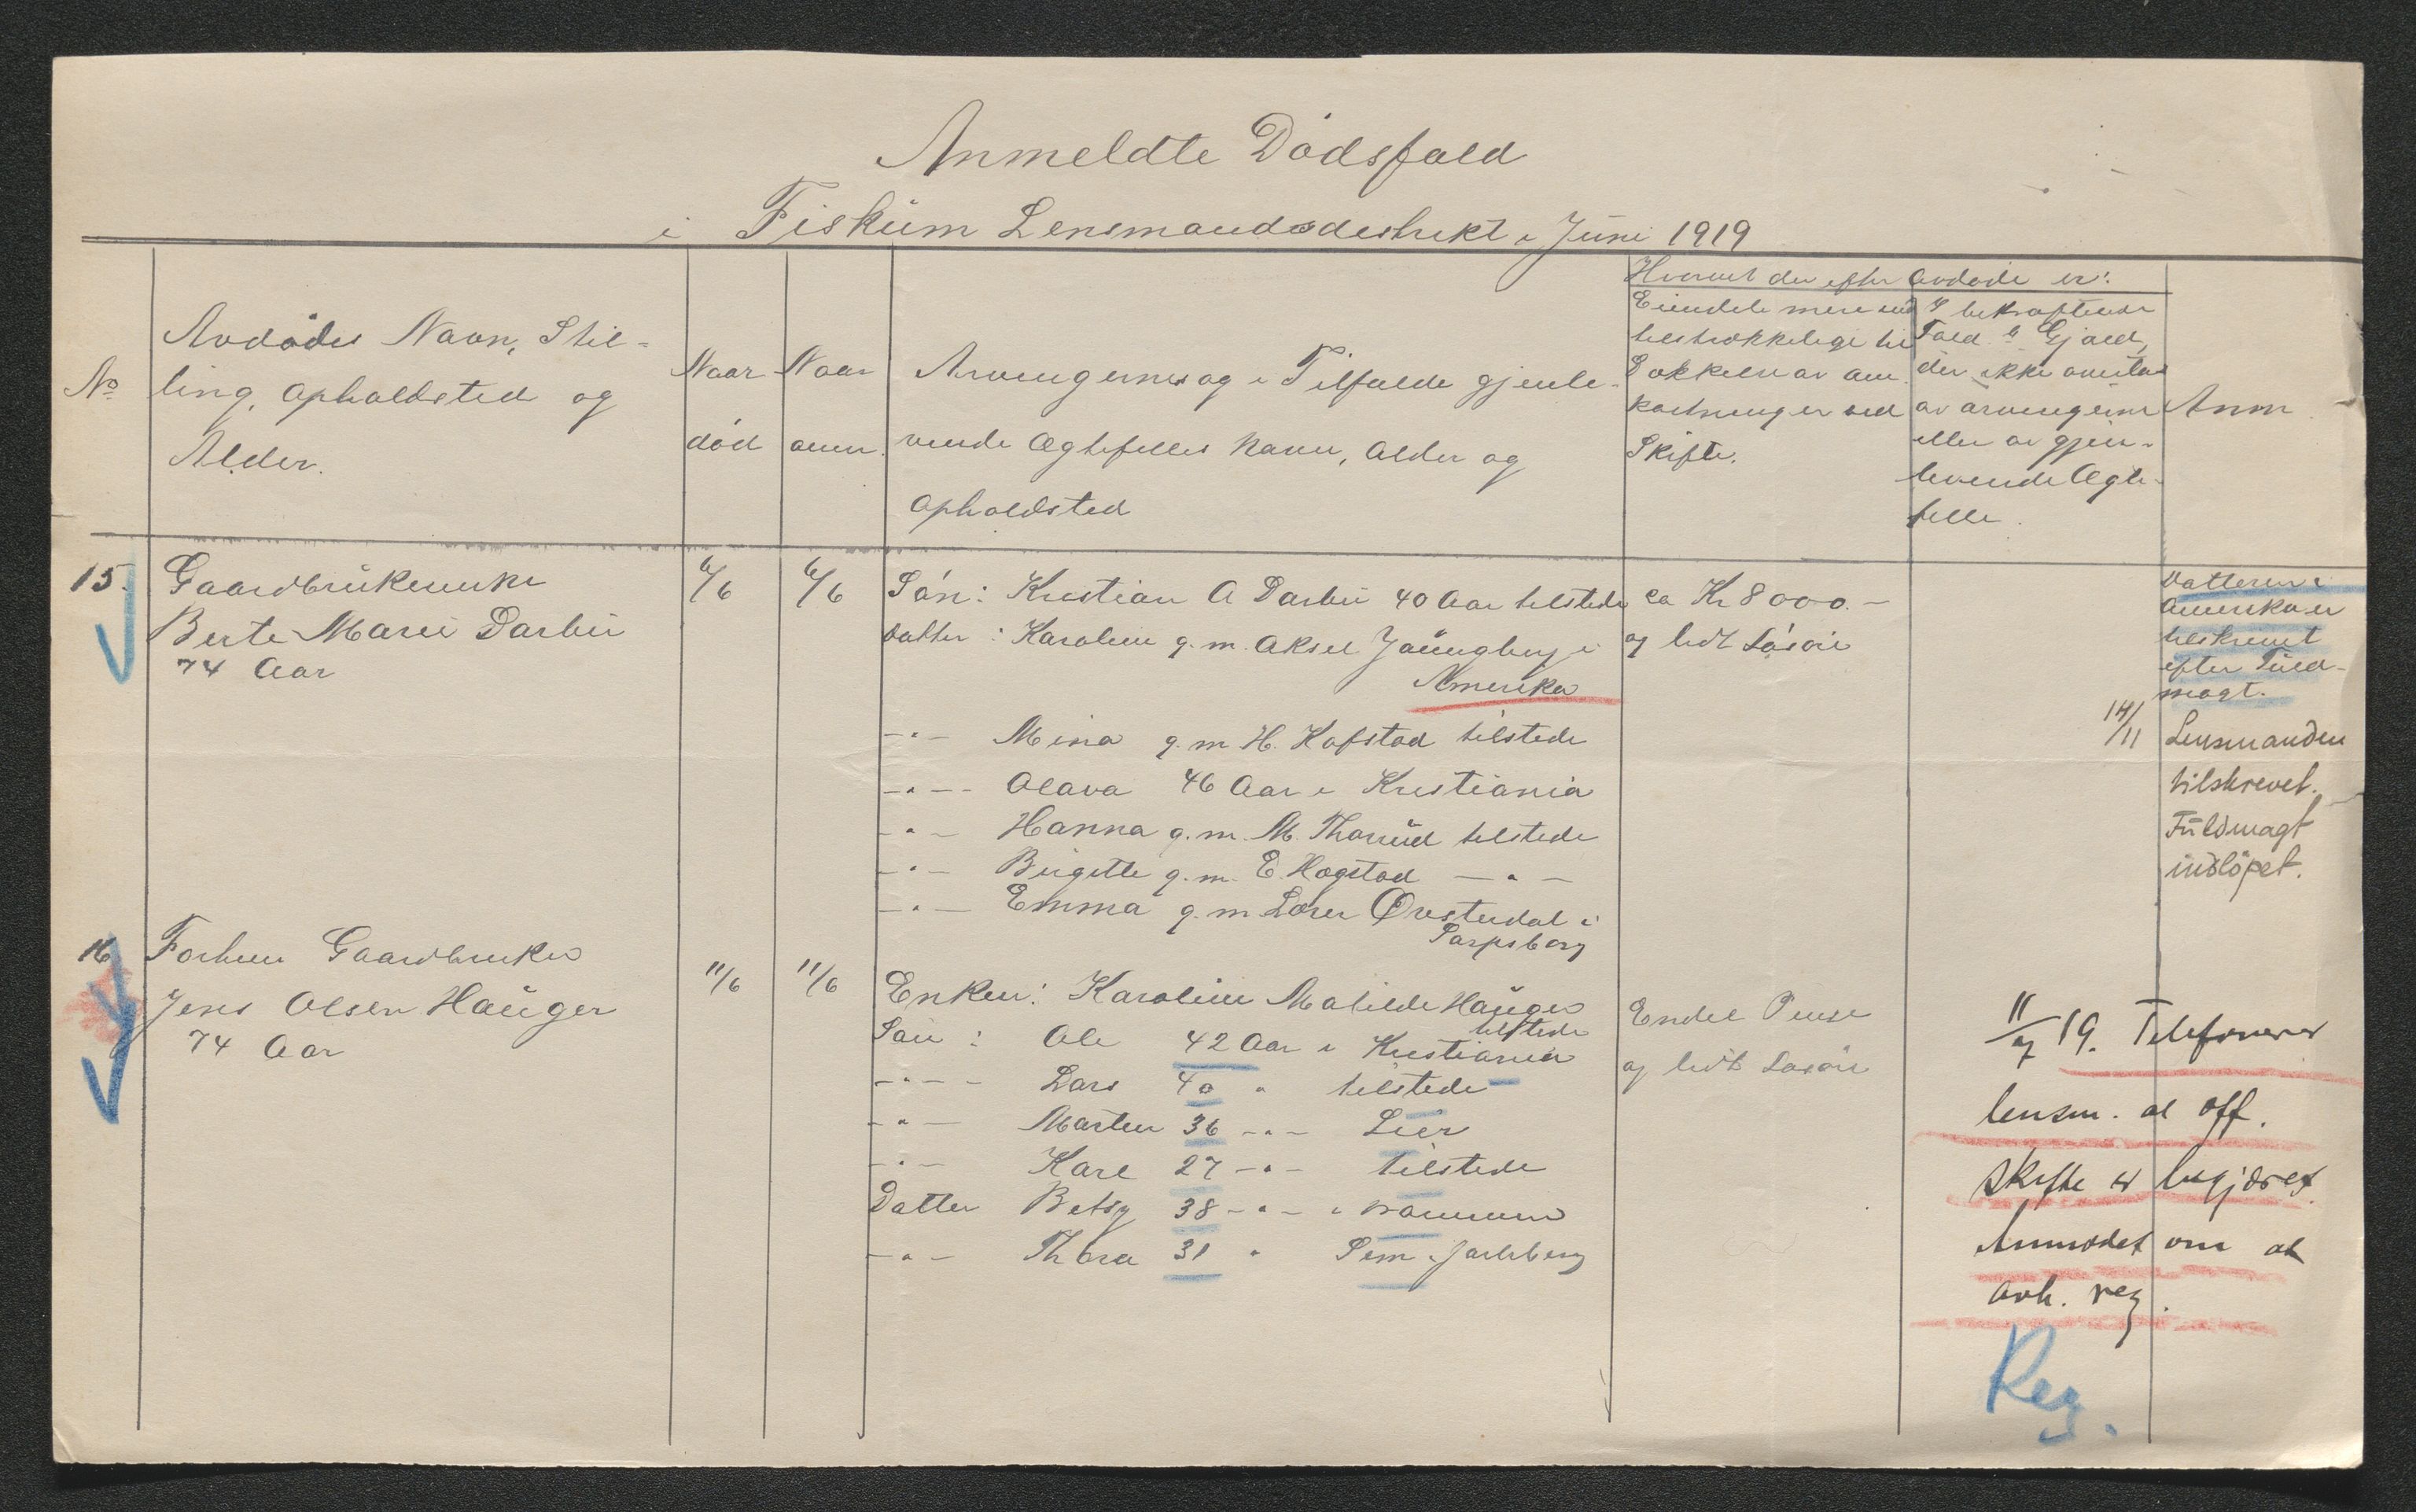 Anmeldte Dödsfald
i Fiskum Lensmandsdestrikt i Juni 1919
No
Avdödes Navn, Stil-
ling, Opholdsted og
Alder.
Naar
död
Naar
anm.
Arvingernes og i Tilfælde gjenle-
vende Ægtefelles Navn, Alder og
Opholdsted
Hvorvidt der efter Avdöde er:
Eiendele mere end
tilstrækkelige til
Dækkelse av om-
kostninger ved
Skifte.
I bekræftende
Fald og Gjæld,
der ikke overtas
av arvingerne
eller av gjen-
levende Ægte-
felle.
Anm.
15.
Gaardbrukerenke
Berte Marie Darbu
74 Aar
6/6
6/6
Sön: Kristian A Darbu 40 Aar tilstede
Datter: Karoline g.m. Aksel Youngberg i
Amerika
-"- Mina g.m. H. Kofstad tilstede
-"- Olava 46 Aar i Kristiania
-"- Hanna g.m. M. Thorrud tilstede
-"- Birgitte g.m. E. Hogstad -"-
-"- Emma g.m. Lorer Øvsterdal i
Sarpsborg
ca Kr 8000.-
og lidt Lösöre
Datteren i
Amerika er
tilskrevet
efter Fuld-
magt.
14/11 Lensmanden
tilskrevet.
Fuldmagt
indlöpet.
16
Forhen Gaardbruker
Jens Olsen Hauger
74 Aar
11/6
11/6
Enken: Karoline Matilde Hauger
tilstede
Sön: Ole 42 Aar i Kristiania
-"- Lars 40 " tilstede
-"- Marten 36 -"- Lier
-"- Karl 27 -"- tilstede
Datter Betsy 38 -"- i Drammen
-"- Thora 31 " Sem i Jarlsberg
Endel Penge
og lidt Lösöre
11/7 19. Telefonerer
lensm. at off.
skifte er begjæret.
Anmodet om at
avh. reg.
Reg.